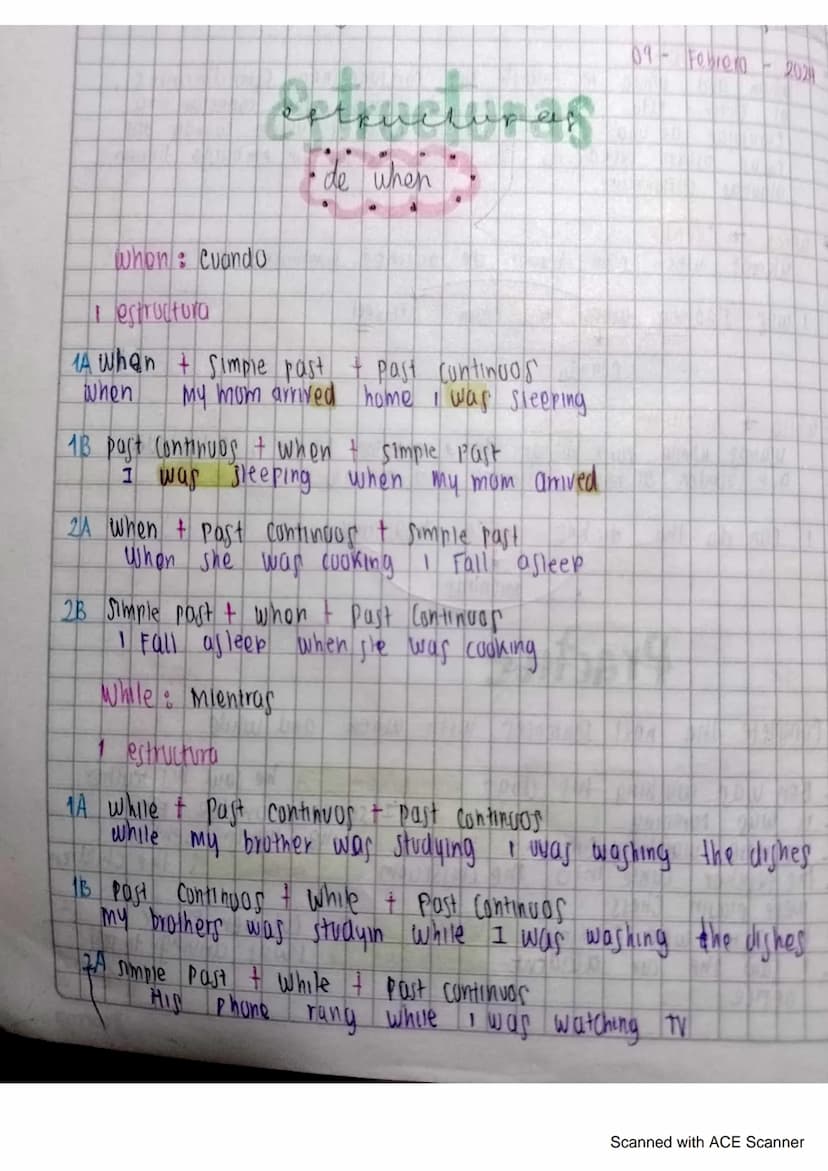 09 - Febrero - 2024
Estructuras
estructuras
de when
when : cuando
1 estructura
1A when + simple past + past continuos
when my mom arrived home I was sleeping
1B past continuos + when + simple past
I was sleeping when my mom arrived
2A when + past continuos + simple past
When she was cooking I Fall asleep
2B Simple past + when + past continuos
I Fall asleep when she was cooking
While : Mientras
1 estructura
1A while + past continuos + past continuos
while my brother was studying I was washing the dishes
1B past continuos + while + past continuos
my brothers was studyin while I was washing the dishes
2A simple past + while + past continuos
His phone rang while I was watching TV
Scanned with ACE Scanner